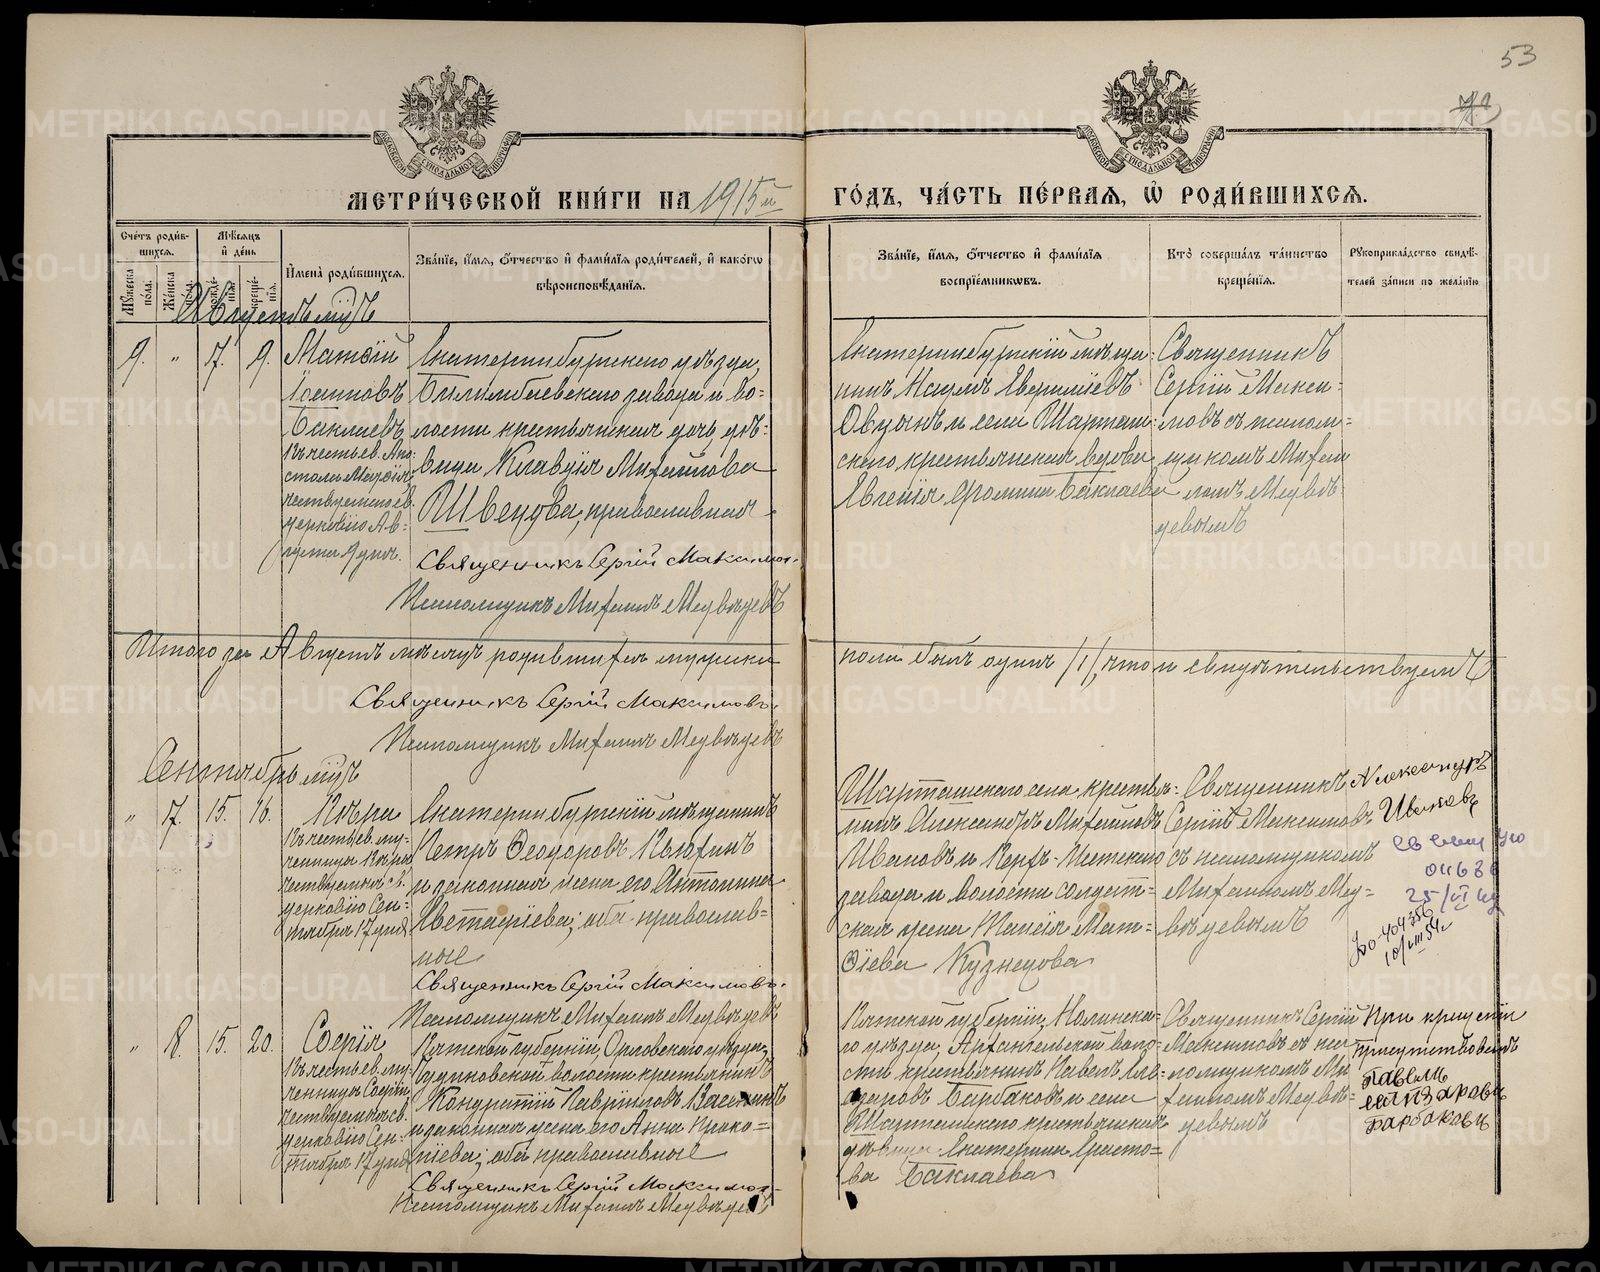 53
МЕТРИ́ЧЕСКОЙ КНИ́ГИ НА 1915й ГО́ДЪ, ЧА́СТЬ ПЕ́РВАЯ, Ѽ РОДИ́ВШИХСЯ.
Сче́тъ роди́в-
шихся.
Му́жеска
по́ла.
Же́нска
по́ла.
Мѣ́сяцъ
и҆ де́нь
рожде́-
нїя.
креще́-
нїя.
И҆мена̀ роди́вшихся.
Зва́нїе, и҆́мя, ѻ҆́тчество и҆ фамѝлїя роди́телей, и҆ како́гѡ
вѣроисповѣ́данїя.
Зва́нїе, и҆́мя, ѻ҆́тчество и҆ фамѝлїя
воспрїе́мникѡвъ.
Кто̀ соверша́лъ та́инство
креще́нїя.
Рꙋкоприкла́дство свидѣ́-
телей за́писи по жела́нїю
Августъ м͠цъ
9.
"
7.
9.
Матѳій
Іоанновъ
Баклаевъ
Въ честь св. Апо-
стола Матѳія
чествуемаго св.
церковію Ав-
густа 9 дня.
Екатеринбургскаго уѣзда,
Билимбаевскаго завода и во-
лости крестьянская дочь дѣ-
вица Клавдія Михайлова
Швецова, православная
Священникъ Сергій Максимов.
Псаломщикъ Михаилъ Медвѣдевъ
Екатеринбургскій мѣща-
нинъ Наумъ
и села Шарташ-
скаго крестьянская вдова
Евгенія Фомина Баклаева
Священникъ
Сергій Макси-
мовъ съ псалом-
щикомъ Михаи-
ломъ Медвѣ-
девымъ
Итого за Августъ мѣсяцъ родившихся мужска
пола былъ одинъ /1/, что и свидѣтельствуемъ
Священникъ Сергій Максимовъ.
Псаломщикъ Михаилъ Медвѣдевъ
Сентябрь м͠цъ
"
7.
15.
16.
Вѣра
Въ честь св. му-
ченицы Вѣры
чествуемыя св.
церковію Сен-
тября 17 дня
Екатеринбургскій мѣщанинъ
Петръ Ѳеодоровъ
и законная жена его Антонина
Евстафіева; оба православ-
ные
Священникъ Сергій Максимовъ.
Псаломщикъ Михаилъ Медвѣдевъ
Шарташскаго села крестья-
нинъ Александръ Михайловъ
Ивановъ и Верхъ-Исетскаго
завода и волости солдат-
ская жена Таисія Мат-
ѳіева Кузнецова
Священникъ
Сергій Максимовъ
съ псаломщикомъ
Михаиломъ Мед-
вѣдевымъ
Александръ
Ивановъ
"
8.
15.
20.
Софія
Въ честь св. му-
ченицы Софіи
чествуемыя св.
церковію Сен-
тября 17 дня
Вятской губерніи, Орловскаго уѣзда,
волости крестьянинъ
Кондратій Гавріиловъ
и законная жена его Анна Проко-
піева; оба православные
Священникъ Сергій Максимов-
Псаломщикъ Михаилъ Медвѣдевъ
Вятской губерніи, Нолинска-
го уѣзда, Архангельской воло-
сти крестьянинъ Павелъ Еле-
азаровъ Барбаковъ и села
Шарташскаго крестьянская
дѣвица Екатерина Христо-
ва Баклаева
Священникъ Сергій
Максимовъ съ пса-
ломщикомъ Ми-
хаиломъ Медвѣ-
девымъ
При крещеніи
присутствовалъ
Павелъ
Елизаровъ
Барбаковъ